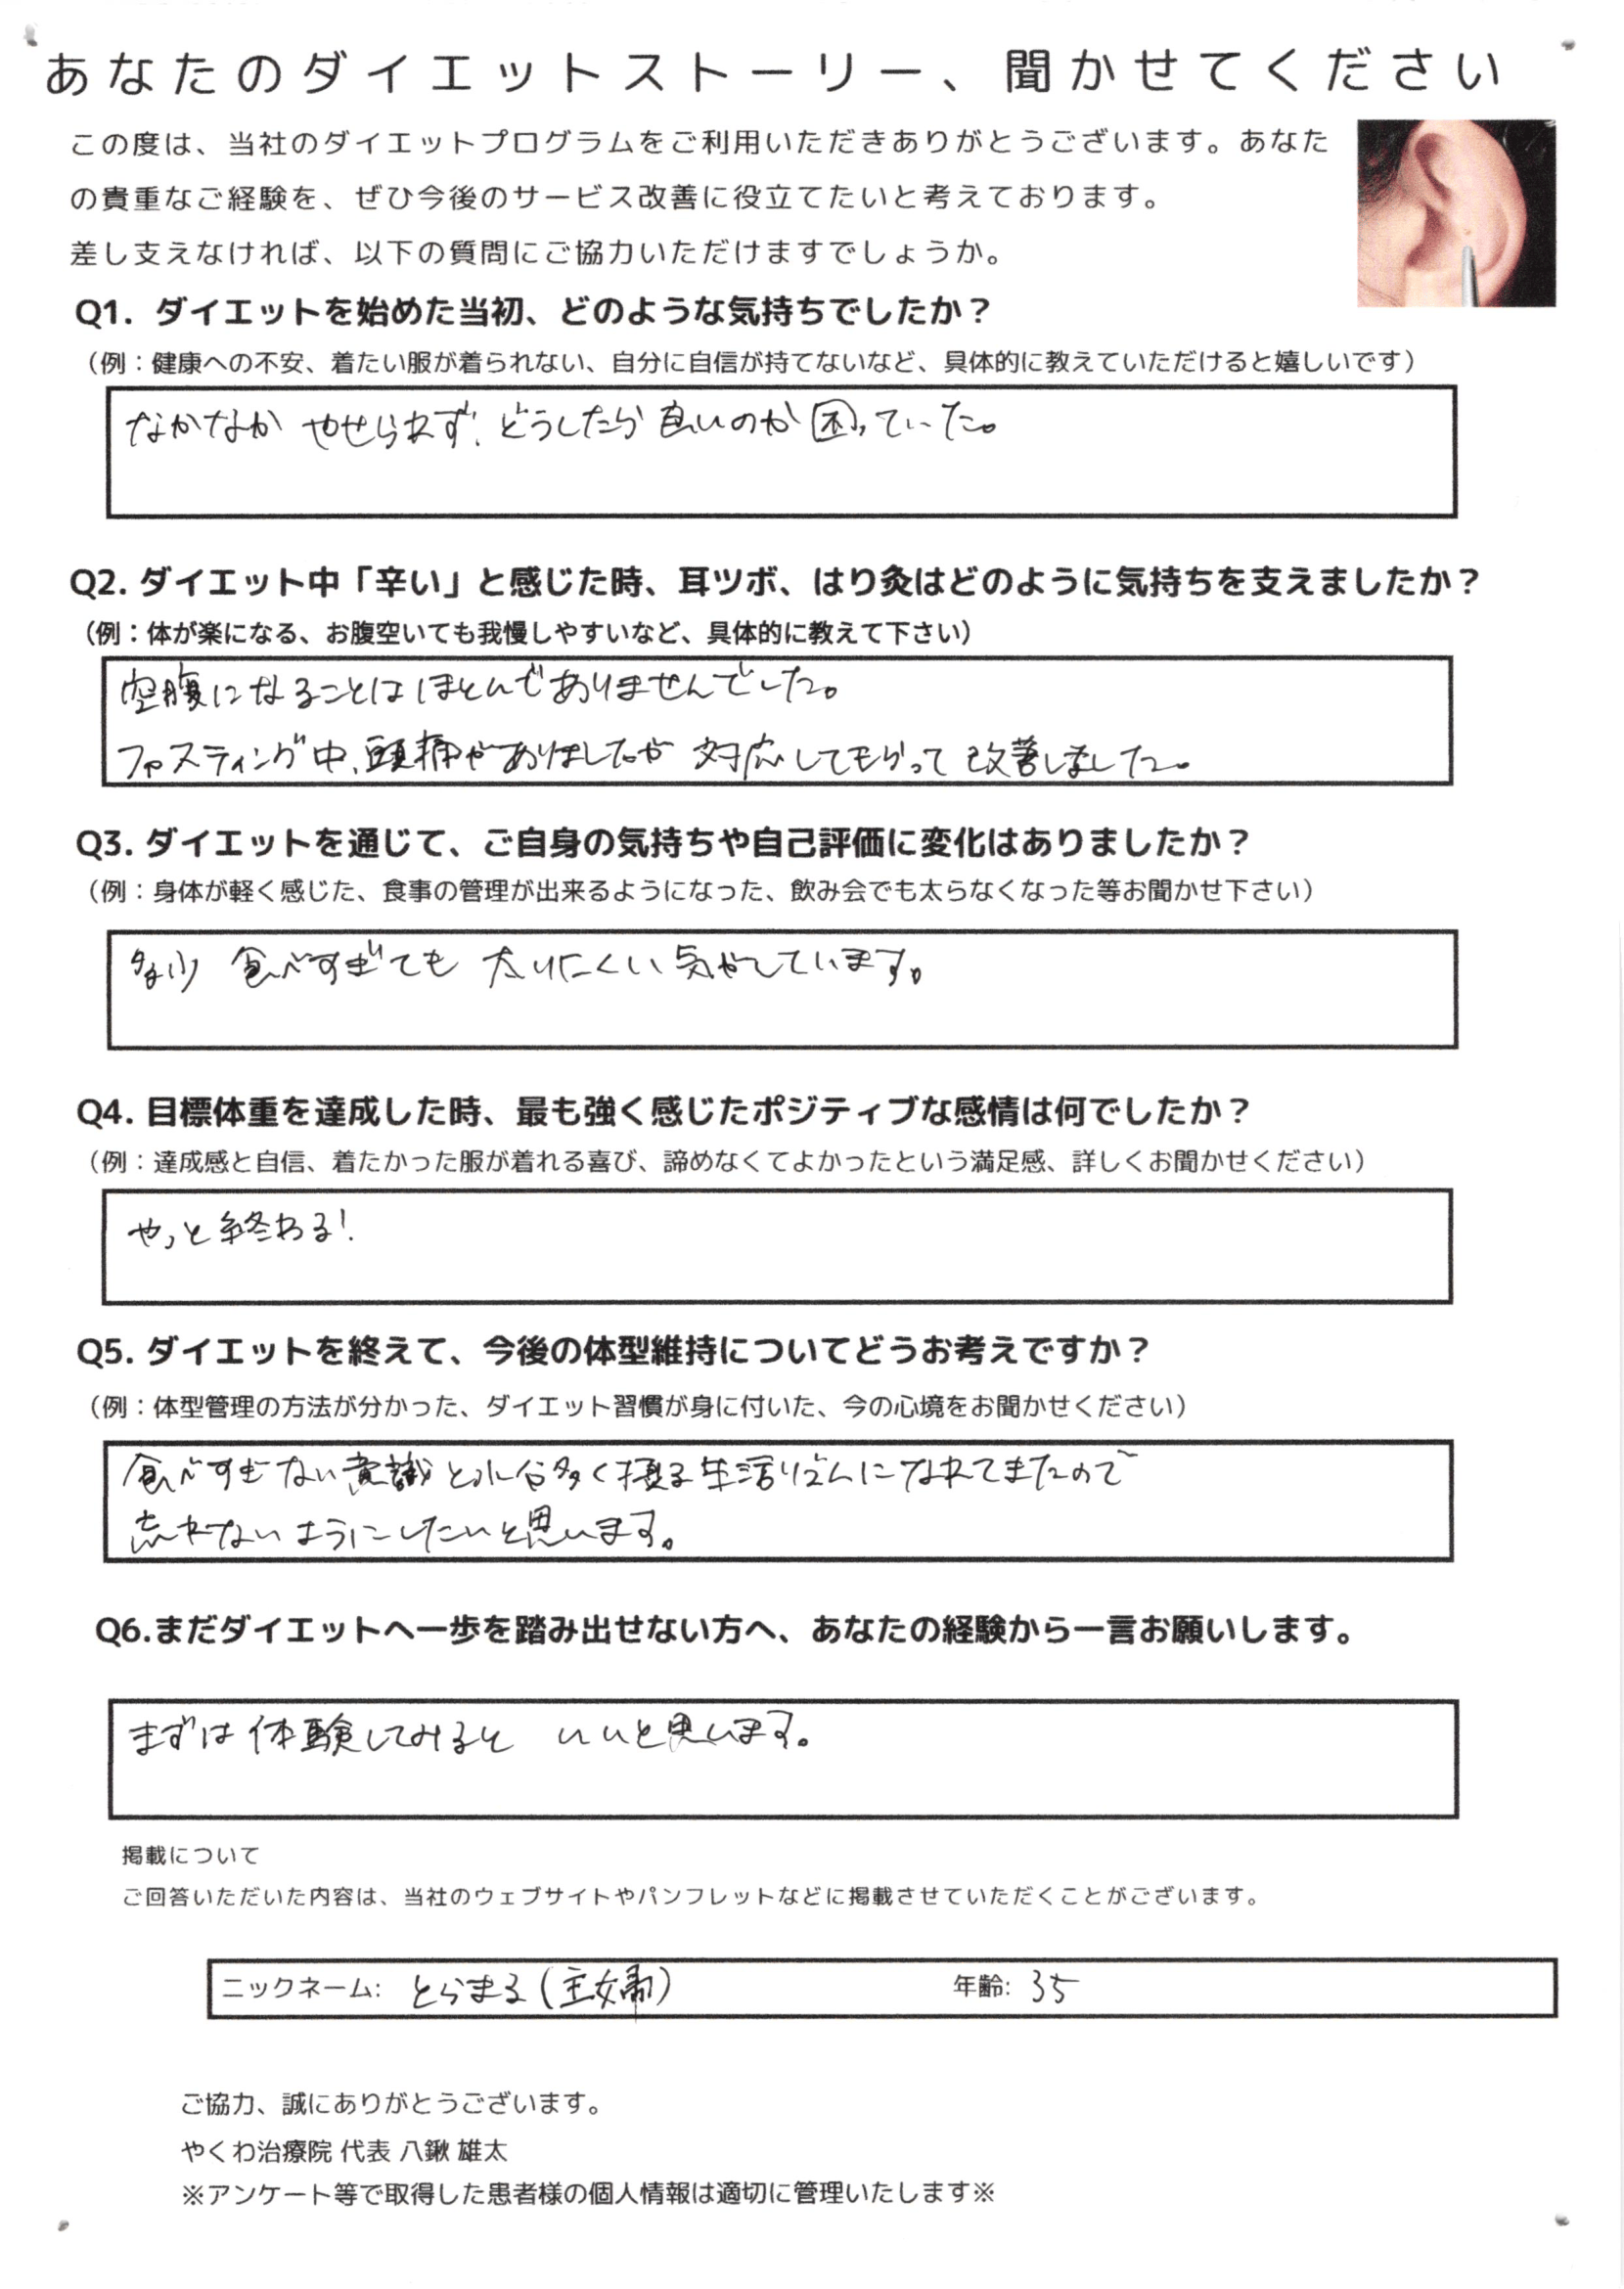 あなたのダイエットストーリー、聞かせてください
この度は、当社のダイエットプログラムをご利用いただきありがとうございます。あなた
の貴重なご経験を、ぜひ今後のサービス改善に役立てたいと考えております。
差し支えなければ、以下の質問にご協力いただけますでしょうか。
Q1. ダイエットを始めた当初、どのような気持ちでしたか？
（例：健康への不安、着たい服が着られない、自分に自信が持てないなど、具体的に教えていただけると嬉しいです）
なかなか やせられず、どうしたら良いのか困っていた。
Q2. ダイエット中「辛い」と感じた時、耳ツボ、はり灸はどのように気持ちを支えましたか？
（例：体が楽になる、お腹空いても我慢しやすいなど、具体的に教えて下さい）
空腹になることはほとんどありませんでした。
ファスティング中、頭痛がありましたが 対応してもらって 改善しました。
Q3. ダイエットを通じて、ご自身の気持ちや自己評価に変化はありましたか？
（例：身体が軽く感じた、食事の管理が出来るようになった、飲み会でも太らなくなった等お聞かせ下さい）
多少 食べすぎても 太りにくい気がしています。
Q4. 目標体重を達成した時、最も強く感じたポジティブな感情は何でしたか？
（例：達成感と自信、着たかった服が着れる喜び、諦めなくてよかったという満足感、詳しくお聞かせください）
やっと終わる！
Q5. ダイエットを終えて、今後の体型維持についてどうお考えですか？
（例：体型管理の方法が分かった、ダイエット習慣が身に付いた、今の心境をお聞かせください）
食べすぎない意識と水分多く摂る生活リズムになれてきたので
忘れないようにしたいと思います。
Q6.まだダイエットへ一歩を踏み出せない方へ、あなたの経験から一言お願いします。
まずは体験してみると いいと思います。
掲載について
ご回答いただいた内容は、当社のウェブサイトやパンフレットなどに掲載させていただくことがございます。
ニックネーム: とらまる（主婦） 年齢: 35
ご協力、誠にありがとうございます。
やくわ治療院 代表 八鍬 雄太
※アンケート等で取得した患者様の個人情報は適切に管理いたします※